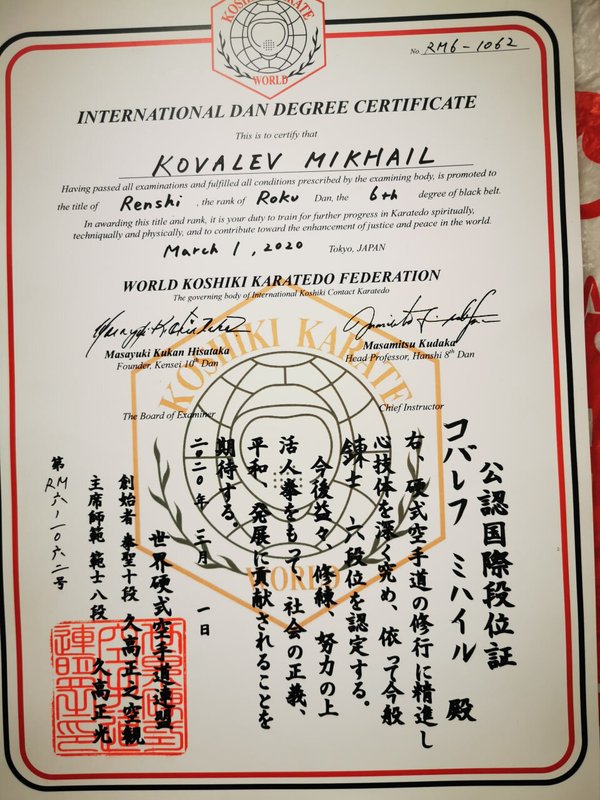 KOSHIKI KARATE
WORLD
No. RM6-1062
INTERNATIONAL DAN DEGREE CERTIFICATE
This is to certify that
KOVALEV MIKHAIL
Having passed all examinations and fulfilled all conditions prescribed by the examining body, is promoted
to the title of Renshi, the rank of Roku Dan, the 6th degree of black belt.
In awarding this title and rank, it is your duty to train for further progress in Karatedo spiritually,
techniqually and physically, and to contribute toward the enhancement of justice and peace in the world.
March 1, 2020 Tokyo, JAPAN
WORLD KOSHIKI KARATEDO FEDERATION
The governing body of International Koshiki Contact Karatedo
Masayuki Kukan Hisataka
Founder, Kensei 10th Dan
Masamitsu Kudaka
Head Professor, Hanshi 8th Dan
The Board of Examiner
Chief Instructor
KOSHIKI KARATE
WORLD
公認国際段位証
コバレフ ミハイル 殿
右、硬式空手道の修行に精進し
心技体を深く究め、依って今般
錬士 六段位を認定する。
今後益々、修練、努力の上
活人拳をもって、社会の正義、
平和、発展に貢献されることを
期待する。
二〇二〇年 三月 一日
世界硬式空手道連盟
創始者 拳聖十段 久高正之空観
主席師範 範士八段 久高正光
第RM六-一〇六二号